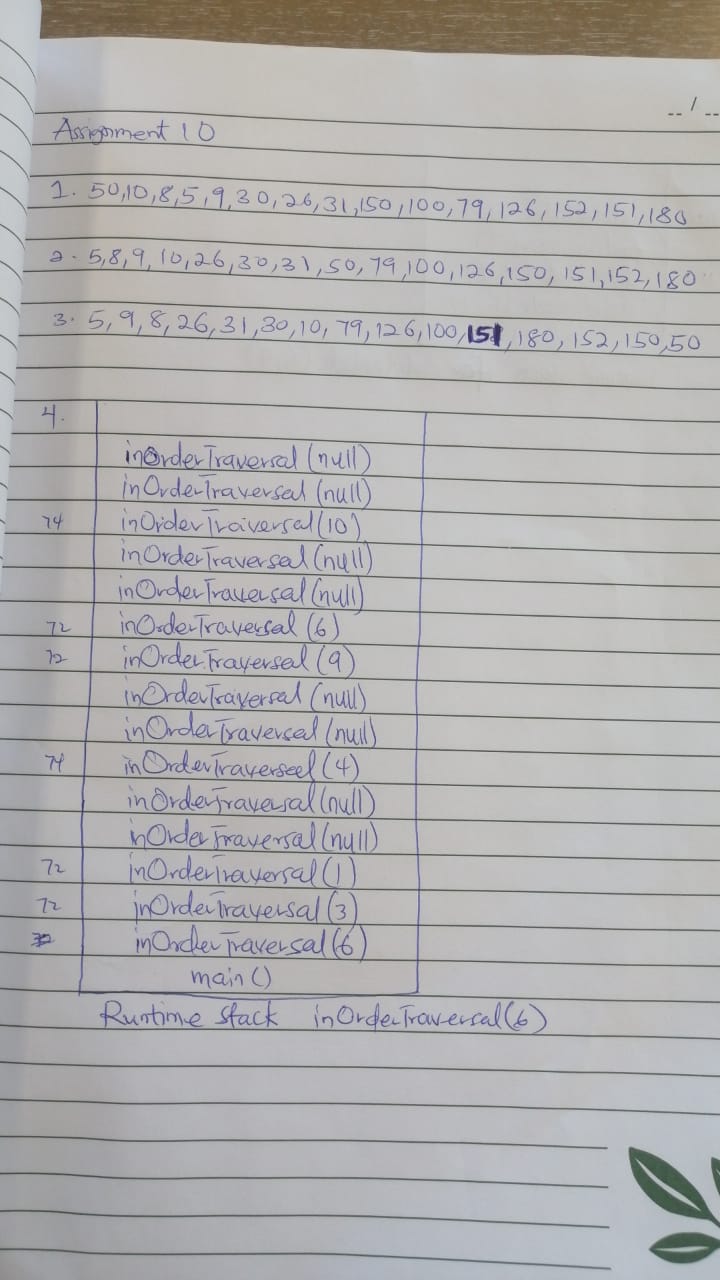 -- / --
Assignment 10
1. 50,10,8,5,9,30,26,31,150,100,79,126,152,151,180
2. 5,8,9,10,26,30,31,50,79,100,126,150,151,152,180
3. 5,9,8,26,31,30,10,79,126,100,151,180,152,150,50
4.
inOrderTraversal (null)
inOrderTraversal (null)
74 inOrderTraversal(10)
inOrderTraversal (null)
inOrderTraversal (null)
72 inOrderTraversal (6)
72 inOrderTraversal (9)
inOrderTraversal (null)
inOrderTraversal (null)
74 inOrderTraversal (4)
inOrderTraversal (null)
inOrderTraversal (null)
72 inOrderTraversal (1)
72 inOrderTraversal (3)
inOrderTraversal (6)
main ()
Runtime stack inOrderTraversal (6)